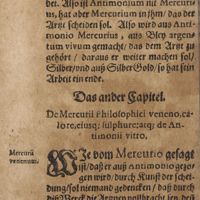 der. Also ist Antimonium nit Mercuri
us, hat aber Mercurium in jhm / das der
Artzt scheiden sol. Also wird aus Anti-
monio Mercurius, aus Bley argen-
tum vivum gemacht / das dem Artzt zu
gehört / daraus er weiter machen sol /
Silber / und auß Silber Gold / so hat sein
Arbeit ein ende.
Das ander Capitel.
De Mercurii Philosophici veneno, ca-
lore, ejusq; sulphure: acq; de An-
timonii vitro,
Mercurii
venenum.
WIe vom Mercurio gesagt
ist / daß er auß Antimonio gezo-
gen wird / durch Kunst der schei-
dung / sol niemand gedencken / daß durch